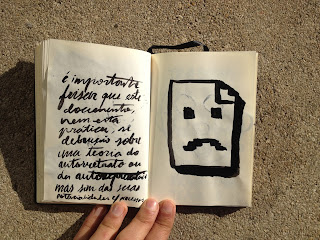 é importante
frisar que este
documento,
nem esta
prática, se
debruçam sobre
uma teoria do
autorretrato ou
da
mas sim das suas
potencialidades e/